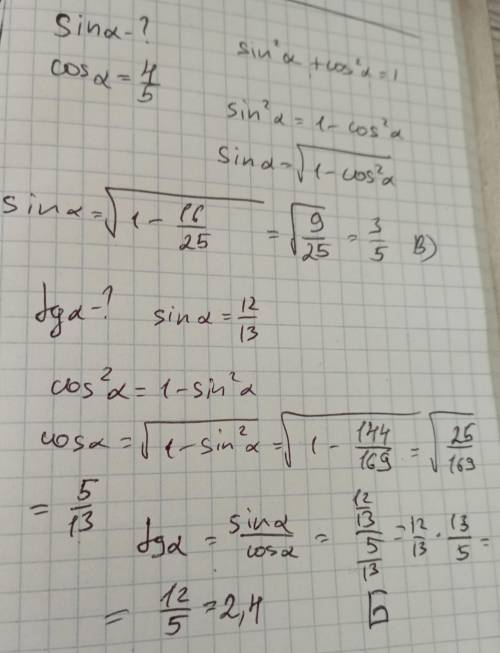 sinα-?
cosα = 4/5
sin²α + cos²α = 1
sin²α = 1 - cos²α
sinα = √(1 - cos²α)
sinα = √(1 - 16/25) = √(9/25) = 3/5 В)
tgα-? sinα = 12/13
cos²α = 1 - sin²α
cosα = √(1 - sin²α) = √(1 - 144/169) = √(25/169)
= 5/13
tgα = sinα/cosα = (12/13)/(5/13) = 12/13 · 13/5 =
= 12/5 = 2,4 Б